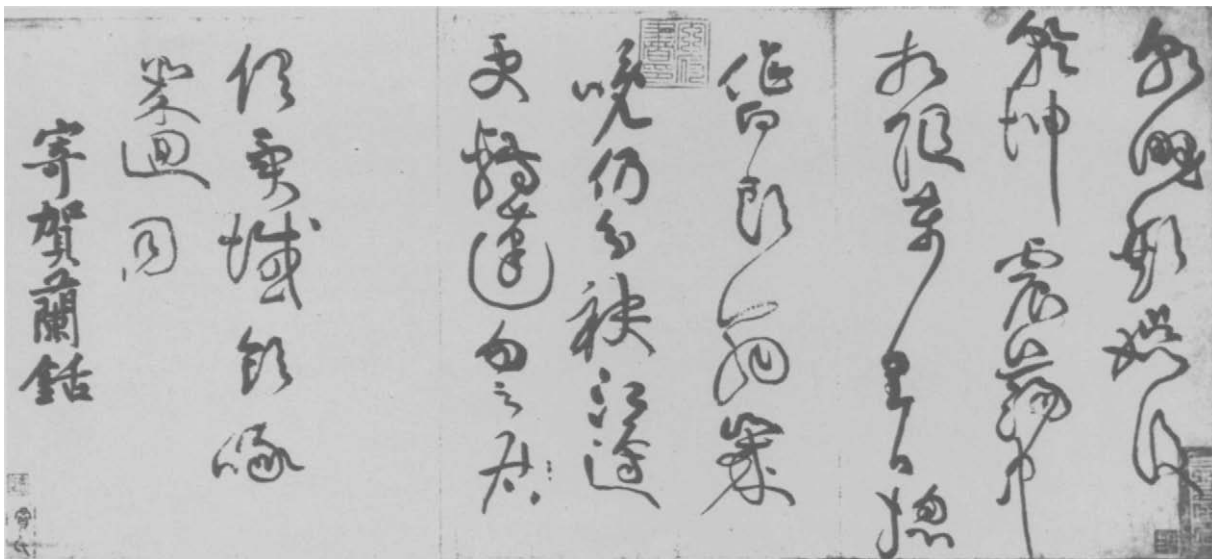 朝野歡娱後
乾坤震蕩中
相随萬里日揔
作白頭翁歲
晚仍分袂江邊
更轉蓬勿云君
俱異域飲啄
幾迴同
寄賀蘭銛